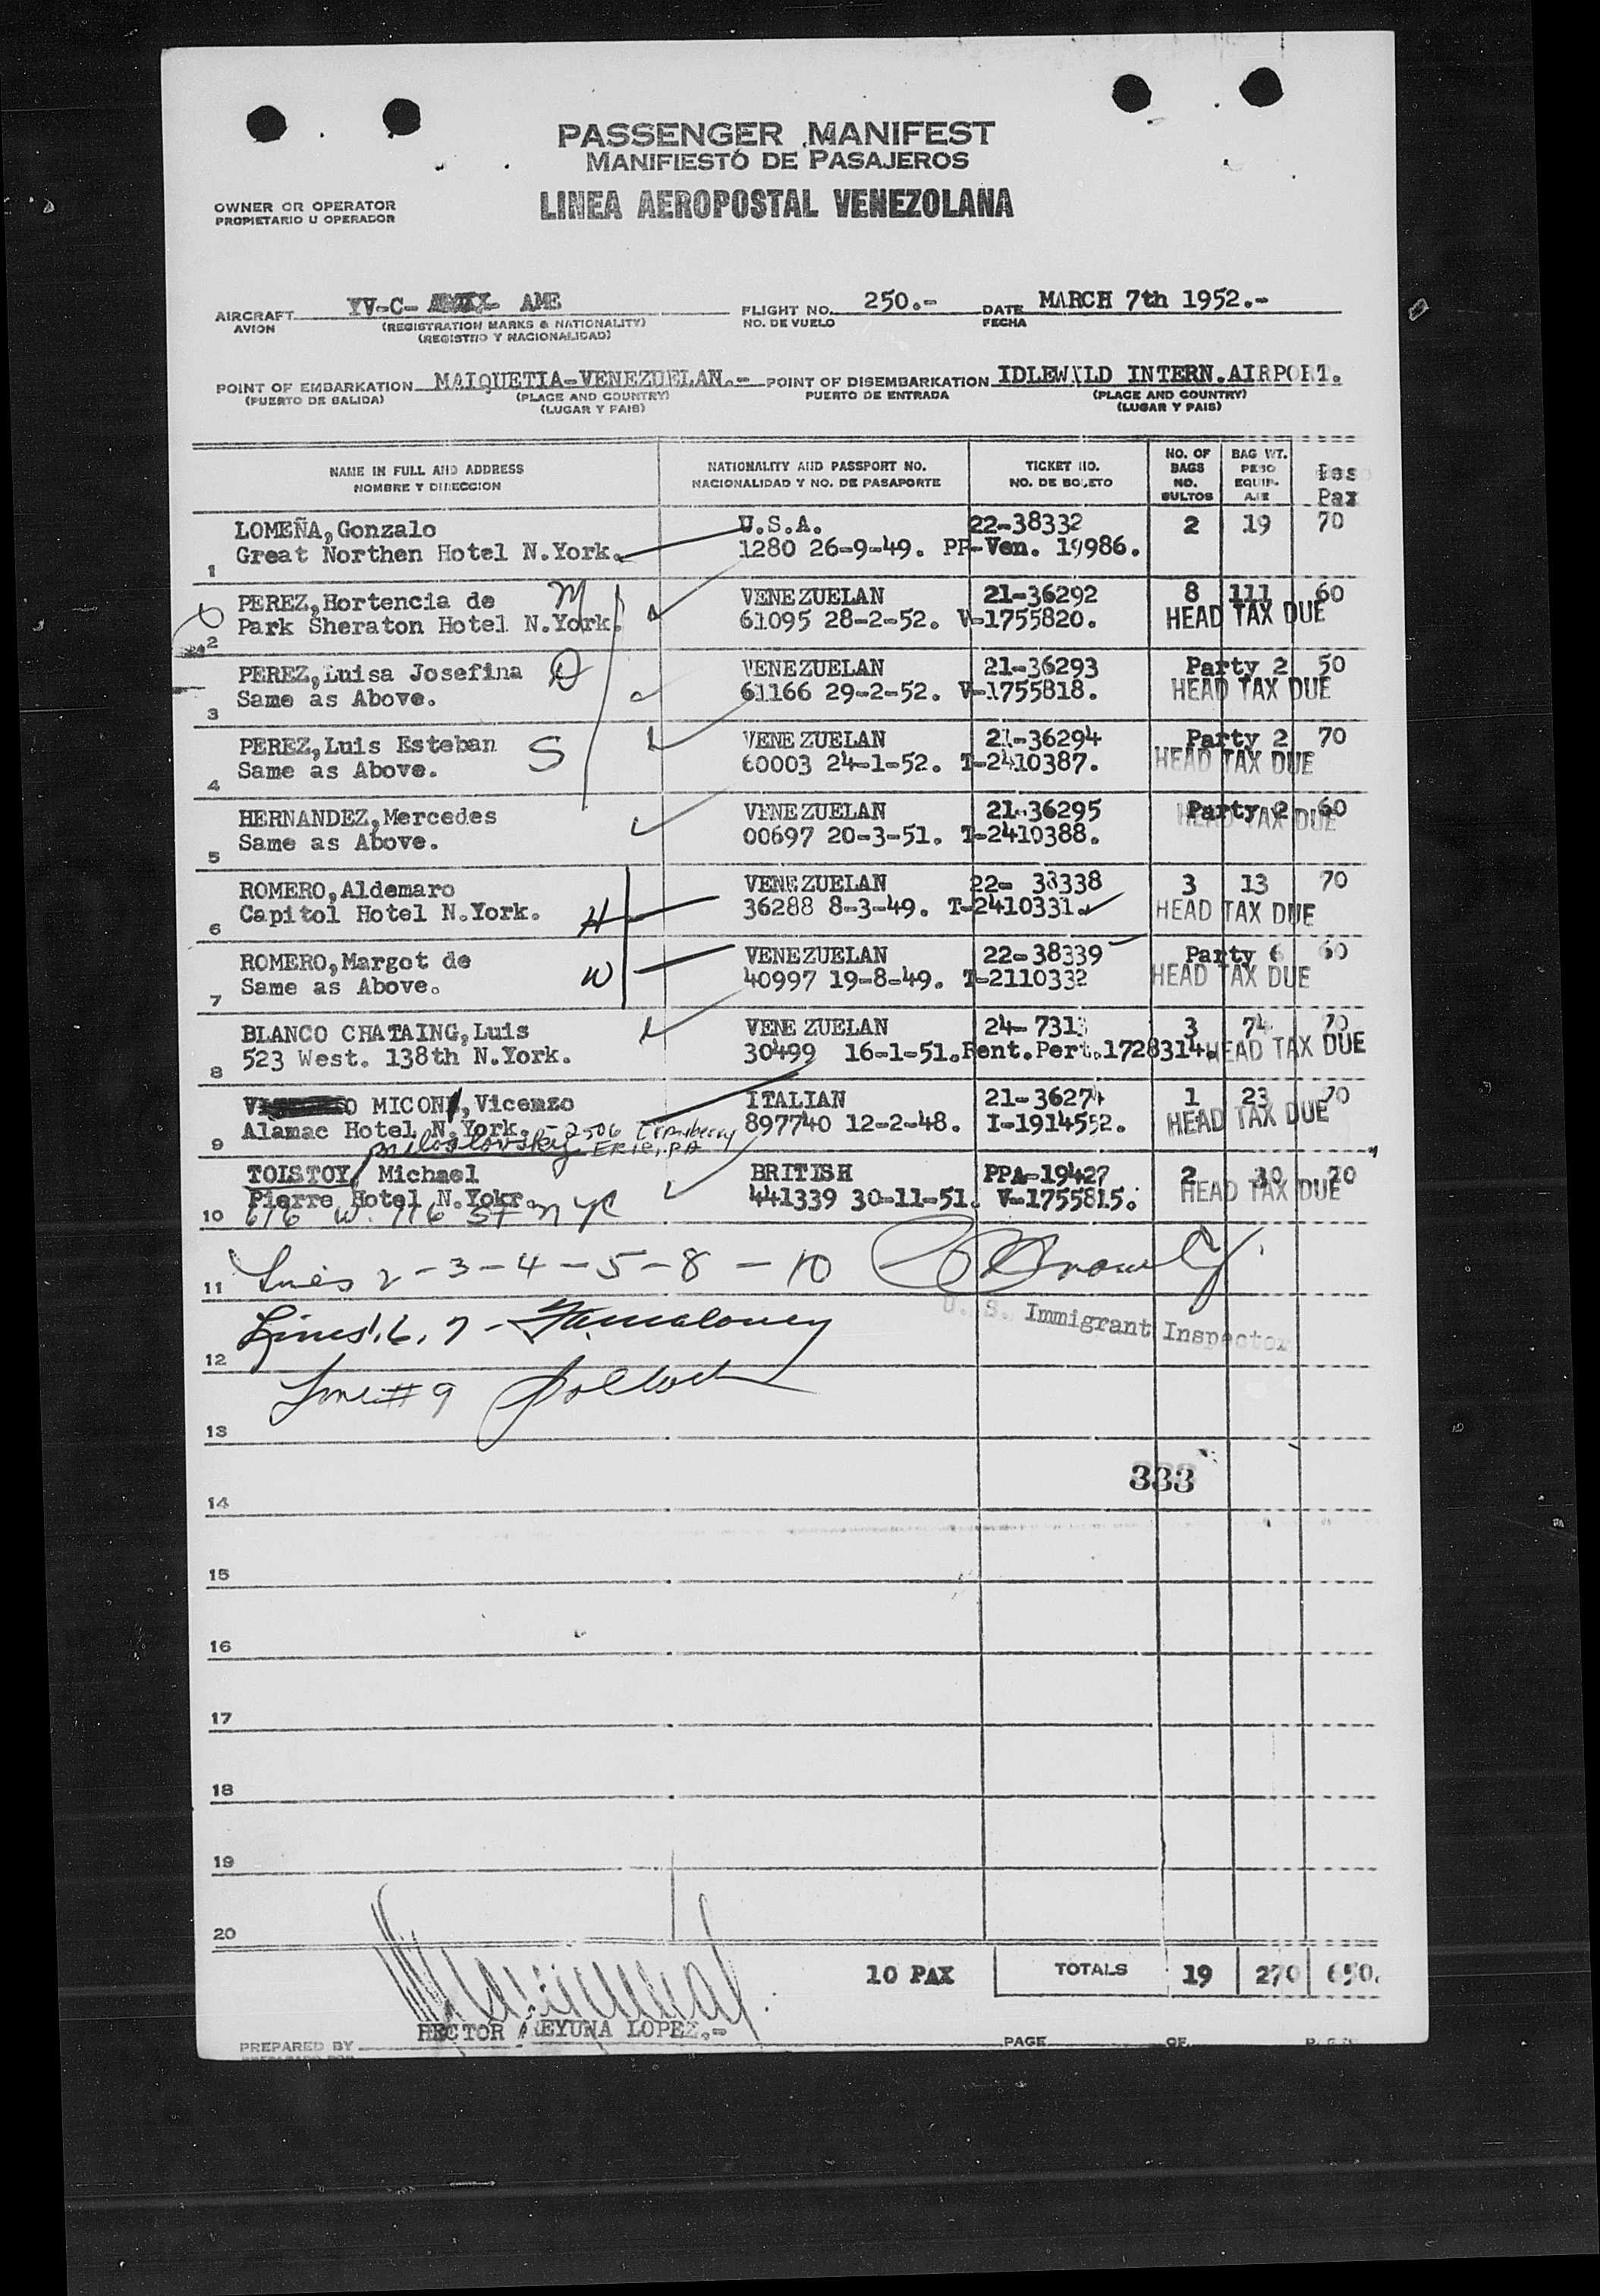 PASSENGER MANIFEST
MANIFIESTO DE PASAJEROS
OWNER OR OPERATOR
PROPIETARIO U OPERADOR
LINEA AEROPOSTAL VENEZOLANA
AIRCRAFT YV-C- AME FLIGHT NO. 250.- DATE MARCH 7th 1952.-
AVION (REGISTRATION MARKS & NATIONALITY) NO. DE VUELO FECHA
(REGISTRO Y NACIONALIDAD)
POINT OF EMBARKATION MAIQUETIA-VENEZUELAN.- POINT OF DISEMBARKATION IDLEWILD INTERN.AIRPORT.
(PUERTO DE SALIDA) (PLACE AND COUNTRY) PUERTO DE ENTRADA (PLACE AND COUNTRY)
(LUGAR Y PAIS) (LUGAR Y PAIS)
NAME IN FULL AND ADDRESS NATIONALITY AND PASSPORT NO. TICKET NO. NO. OF BAGS BAG WT. Peso
NOMBRE Y DIRECCION NACIONALIDAD Y NO. DE PASAPORTE NO. DE BOLETO NO. BULTOS PESO EQUIP-AJE Pax
LOMEÑA,Gonzalo U.S.A. 22-38332 2 19 70
1 Great Northen Hotel N.York. 1280 26-9-49. PP-Ven. 19986.
PEREZ,Hortencia de M VENEZUELAN 21-36292 8 111 60
2 Park Sheraton Hotel N.York. 61095 28-2-52. V-1755820. HEAD TAX DUE
PEREZ,Luisa Josefina D VENEZUELAN 21-36293 Party 2 50
3 Same as Above. 61166 29-2-52. V-1755818. HEAD TAX DUE
PEREZ,Luis Esteban S VENEZUELAN 21-36294 Party 2 70
4 Same as Above. 60003 24-1-52. T-2410387. HEAD TAX DUE
HERNANDEZ,Mercedes VENEZUELAN 21-36295 Party 2 60
5 Same as Above. 00697 20-3-51. T-2410388. HEAD TAX DUE
ROMERO,Aldemaro VENEZUELAN 22- 38338 3 13 70
6 Capitol Hotel N.York. H 36288 8-3-49. T-2410331. HEAD TAX DUE
ROMERO,Margot de W VENEZUELAN 22-38339 Party 6 60
7 Same as Above. 40997 19-8-49. T-2110332 HEAD TAX DUE
BLANCO CHATAING,Luis VENEZUELAN 24-7313 3 74 70
8 523 West. 138th N.York. 30499 16-1-51. 1728314. HEAD TAX DUE
MICON,Vicenzo ITALIAN 21-36274 1 23 70
9 Alamac Hotel N.York. - 2506 Cranberry 897740 12-2-48. I-1914552. HEAD TAX DUE
Miloslavsky ERIE, PA
TOLSTOY, Michael BRITISH PPA-19427 2 30 70
Pierre Hotel N.Yokr. 441339 30-11-51. V-1755815. HEAD TAX DUE
10 616 W. 116 ST N YC
11 Lines 2-3-4-5-8-10
U. S. Immigrant Inspector
12 Lines 1, 6, 7 -
13 Line # 9
333
14
15
16
17
18
19
20
10 PAX TOTALS 19 270 650.
PREPARED BY HECTOR REYUNA LOPEZ.- PAGE OF